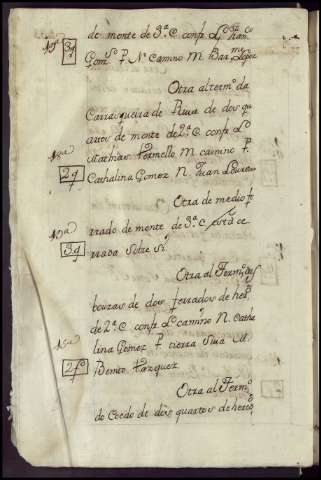 de monte de 3ª C confr. Lte
Gomz P. Nte Camino M. Barme Lopez
3q
Otra al termo da
Carrasqueira de Riua de dos qu
artos de monte de 2ª C confr. Lte
Mathias Vermello M camino P.
Cathalina Gomez N. Juan Lourenzo
2q
Otra de medio fe
rrado de monte de 3ª C está ce
rrada Sobre Si
3q
Otra al Termo
bouzas de dos ferrados de hero
de 2ª C confr. Lte camino N. Catha
lina Gomez P. tierra Sua M.
Benito Vazquez
2fo
Otra al Termo
do Coedo de dos quartos de hero